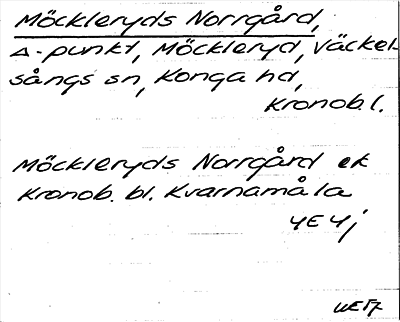 Möckleryds Norrgård,
△-punkt, Möckleryd, Väckel-
sångs sn, Konga hd,
Kronob. l.
Möckleryds Norrgård ek
Kronob. bl. Kvarnamåla
4E4j